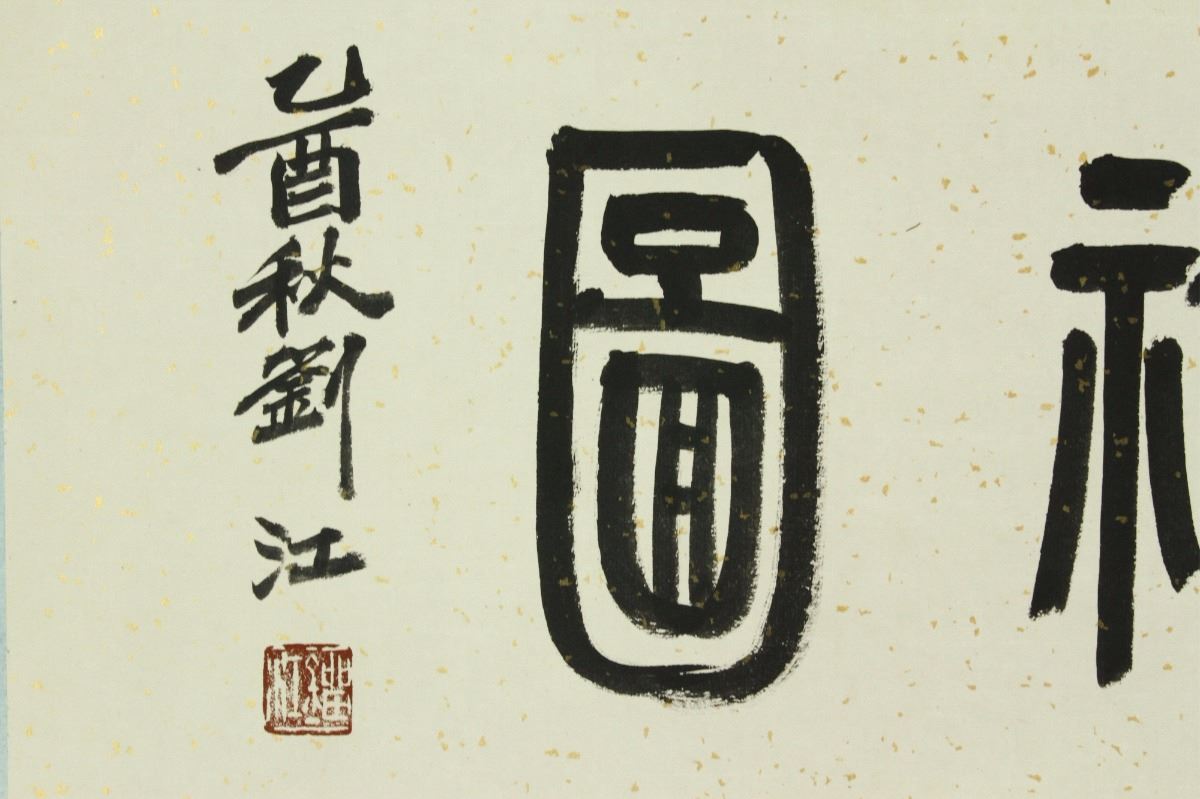 圖
乙酉秋劉江